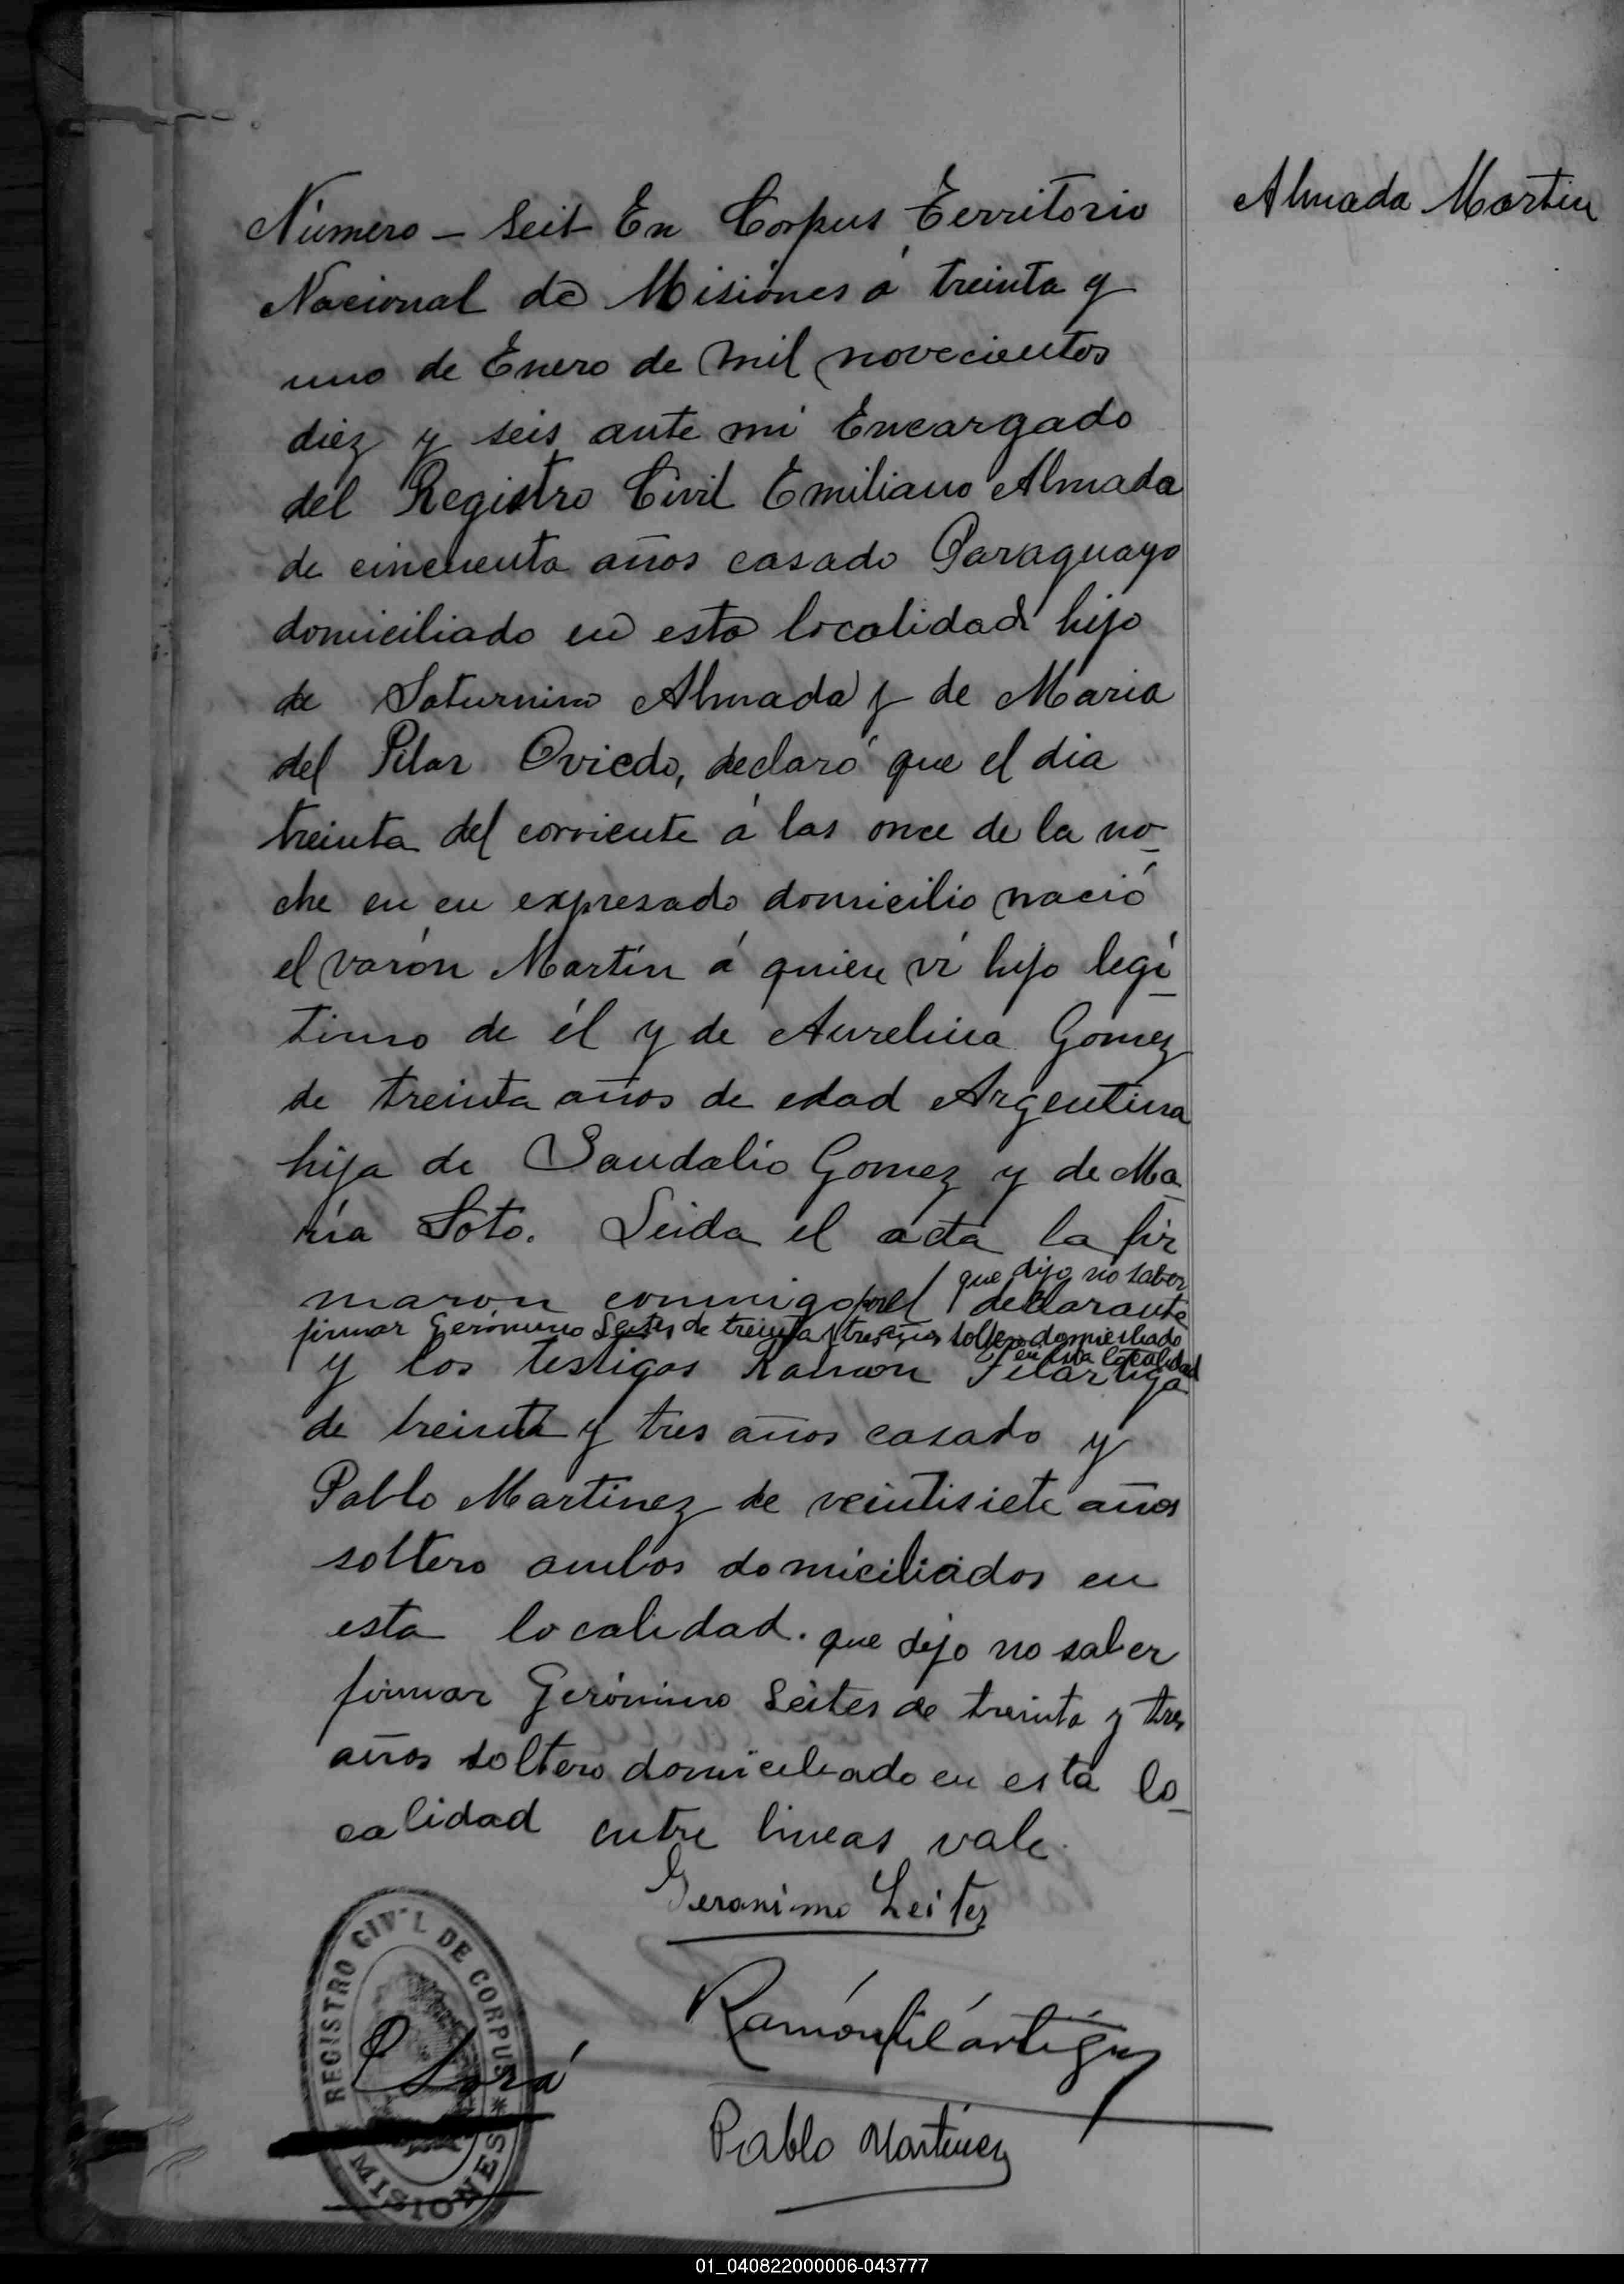 Almada Martin
Número – Seis En Corpus Territorio
Nacional de Misiónes á treinta y
uno de Enero de mil novecientos
diez y seis ante mi Encargado
del Registro Civil Emiliano Almada
de cincuenta años casado Paraguayo
domiciliado en esta localidad hijo
de Saturnino Almada y de Maria
del Pilar Oviedo, declaró que el dia
treinta del corriente á las once de la no-
che en eu expresado domicilio nació
el varón Martín á quien ví hijo legí-
timo de él y de Aurelina Gomez
de treinta años de edad Argentina
hija de Sandalio Gomez y de Ma-
ría Soto. Leida el acta la fir
que dijo no saber
maron conmigo por el declarante
firmar Gerónimo Leites de treinta y tres años soltero domiciliado
en esta localidad
y los testigos Ramon Pilartiga
de treinta y tres años casado y
Pablo Martinez de veintisiete años
soltero ambos domiciliados en
esta localidad. que dijo no saber
firmar Gerónimo Leites de treinta y tres
años soltero domiciliado en esta lo-
calidad entre lineas vale.
Geronimo Leites
Ramón Pilártiga
Pablo Martinez
REGISTRO CIVIL DE CORPUS
* MISIONES *
01_040822000006-043777